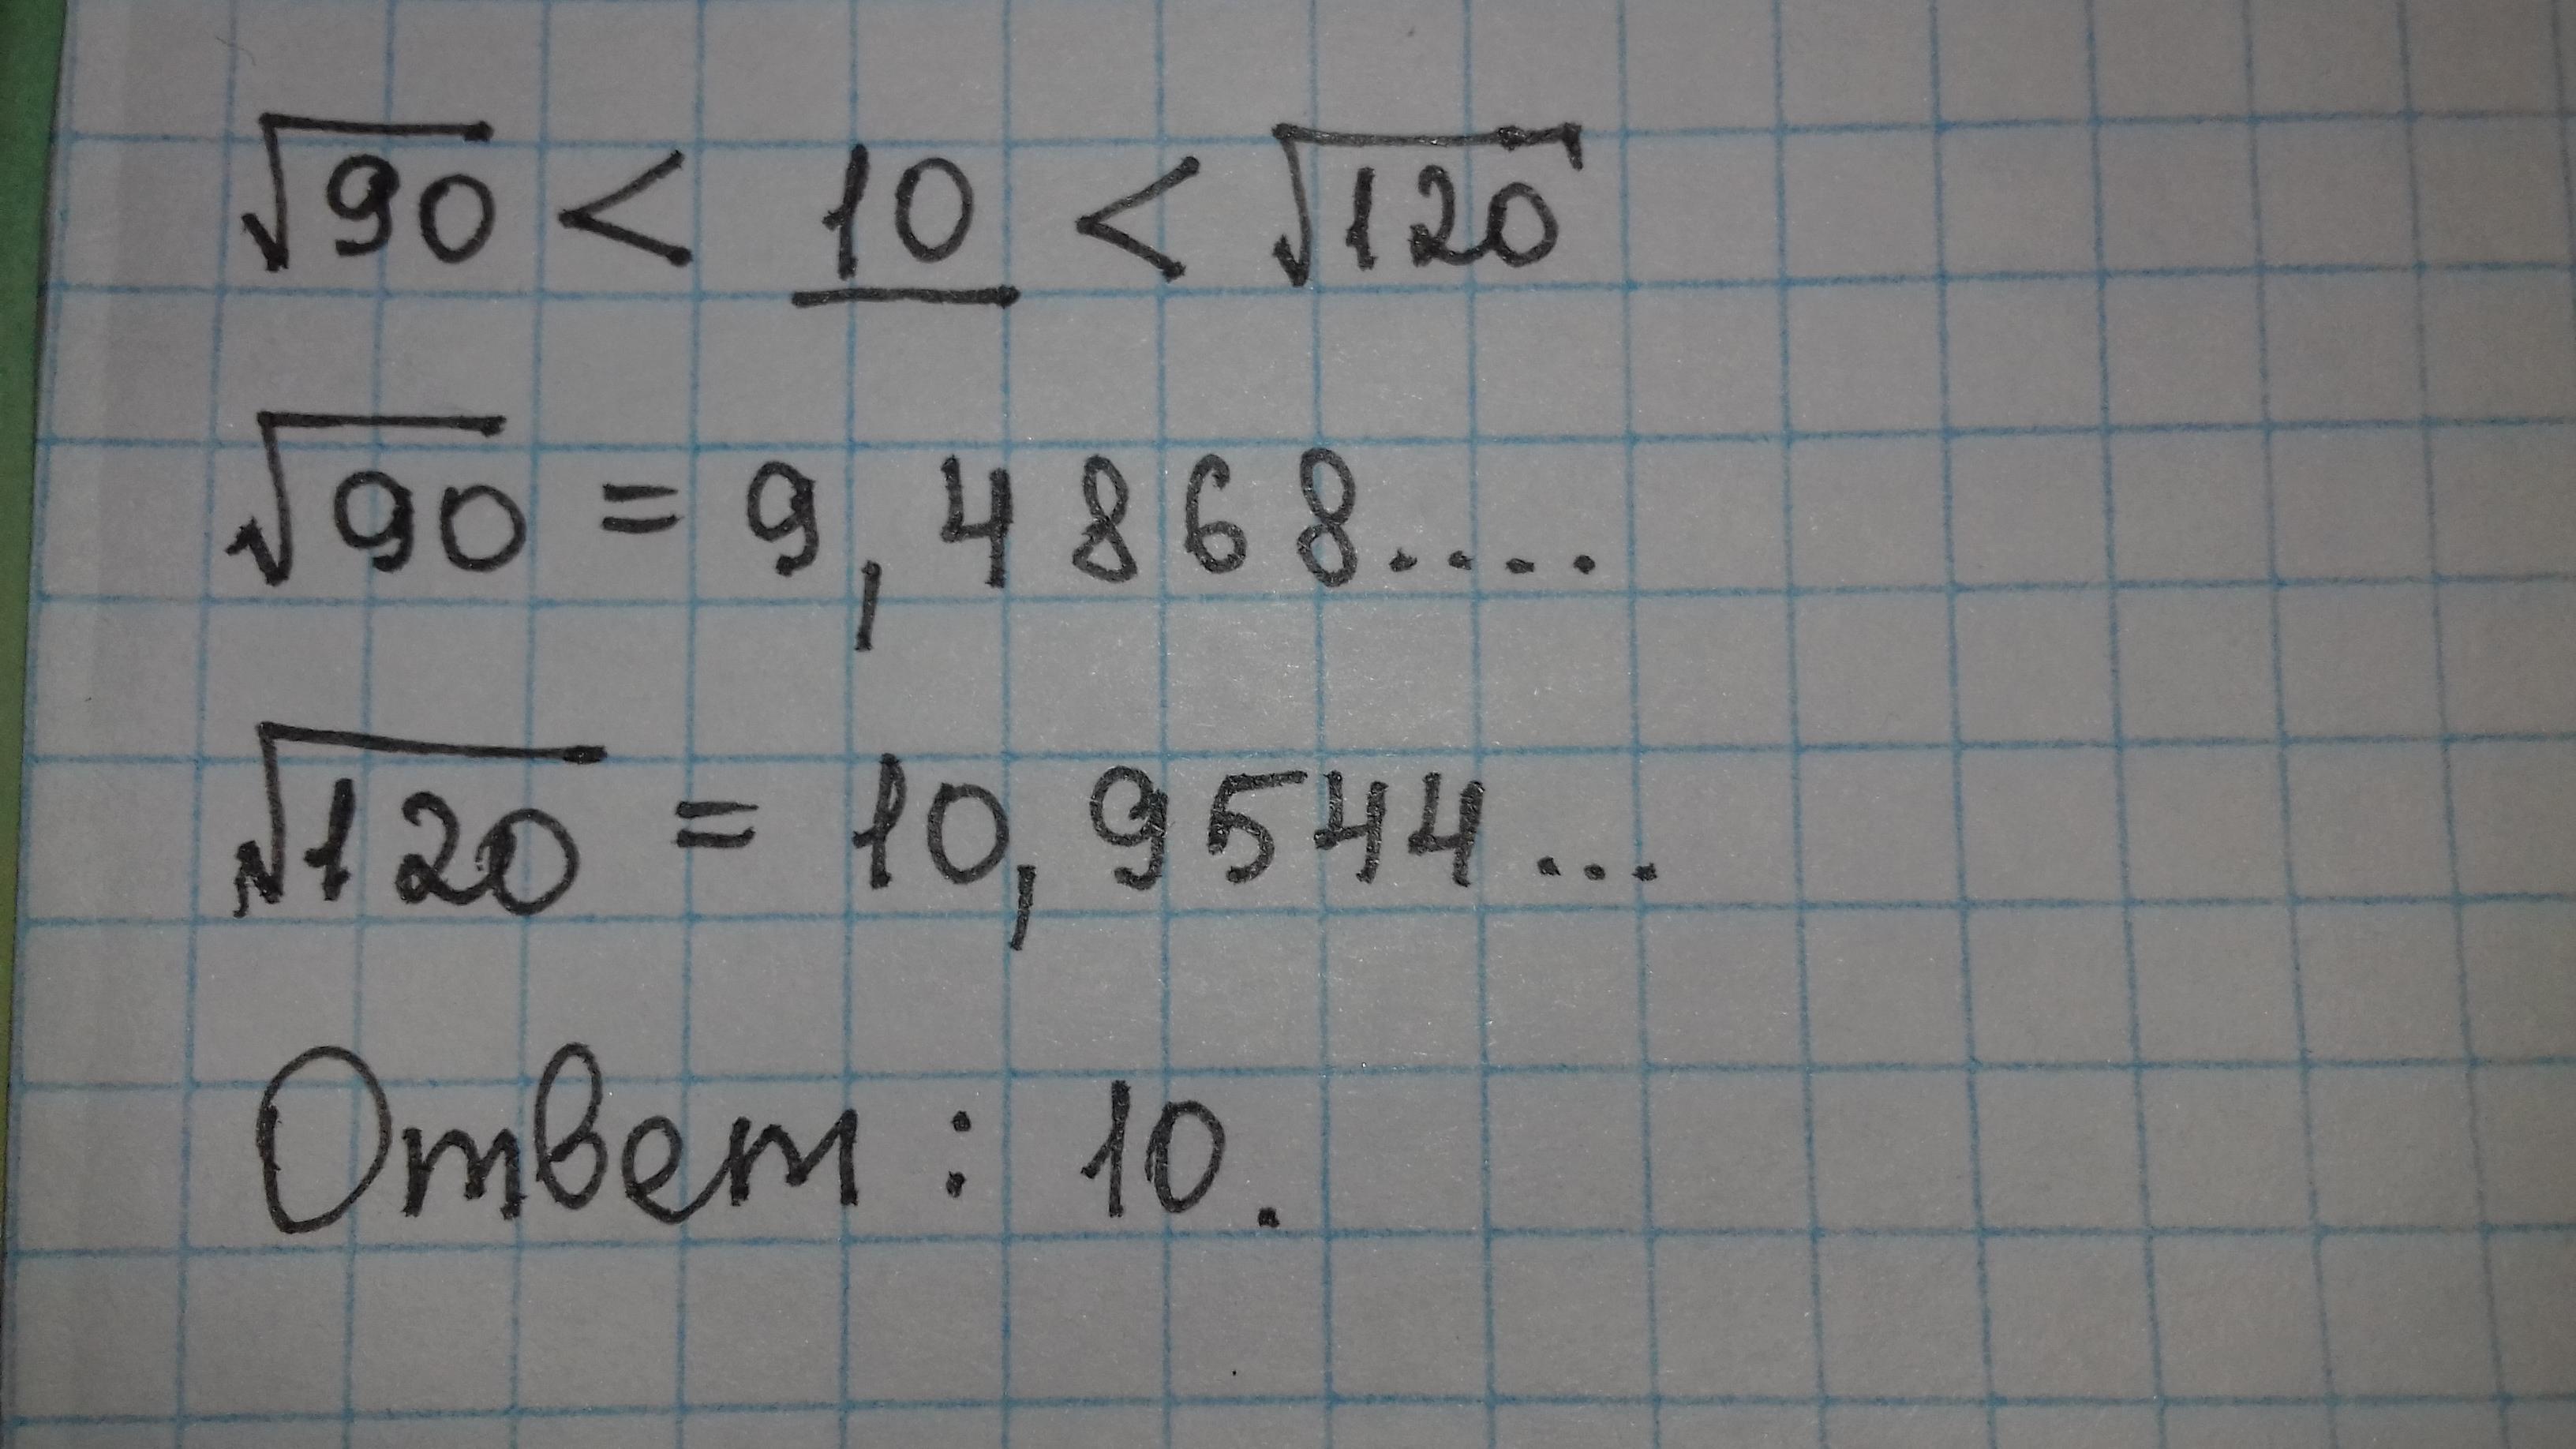 √90 < 10 < √120
√90 = 9,4868....
√120 = 10,9544...
Ответ : 10.